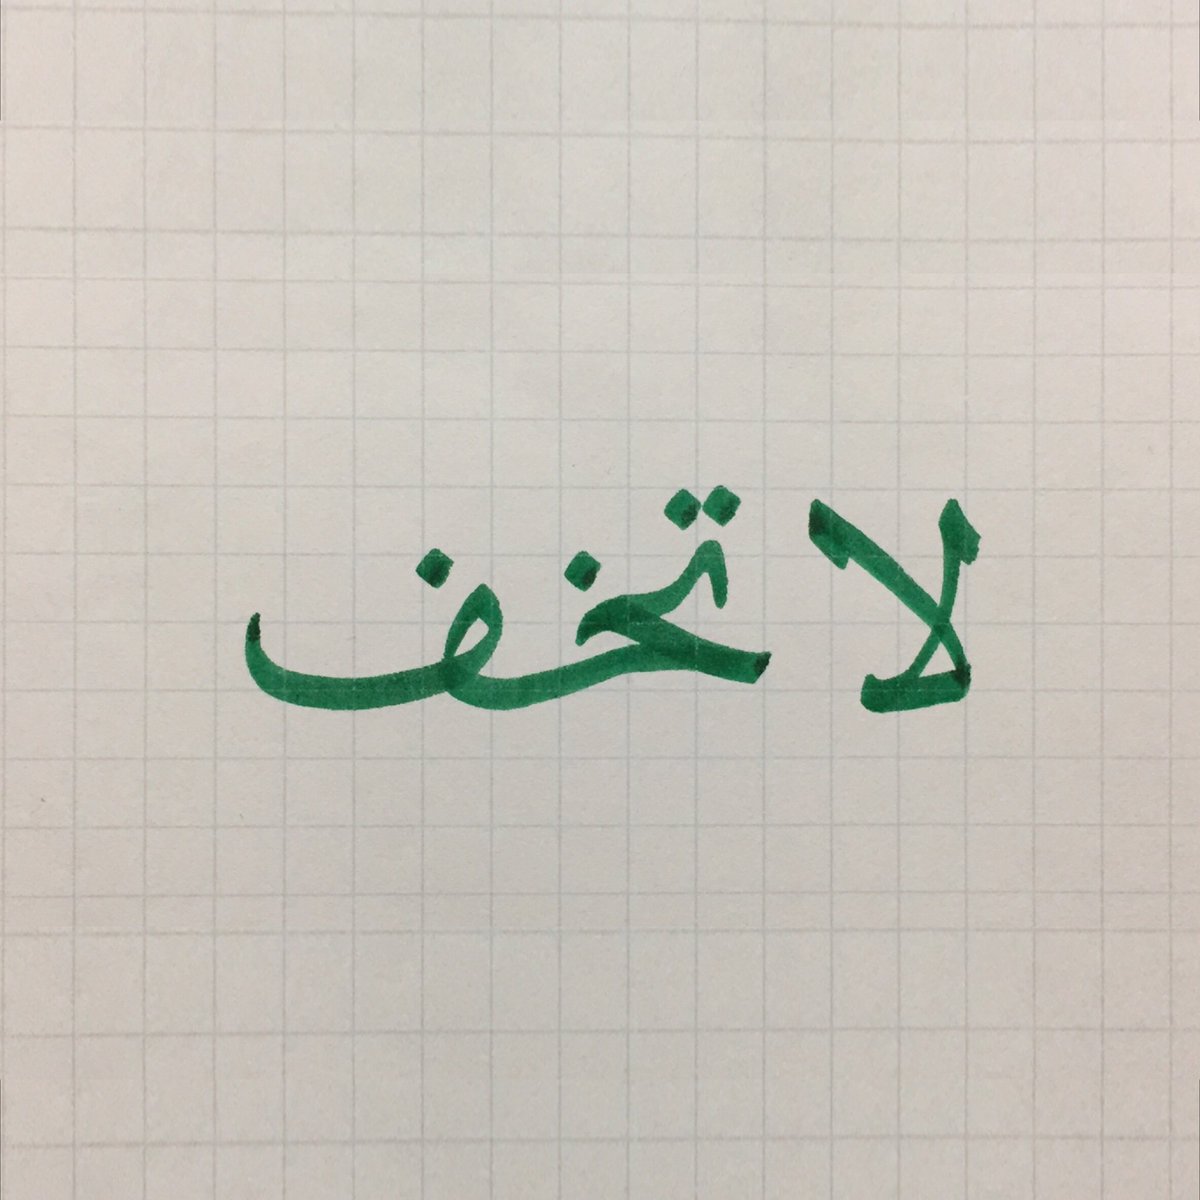 لا تخف